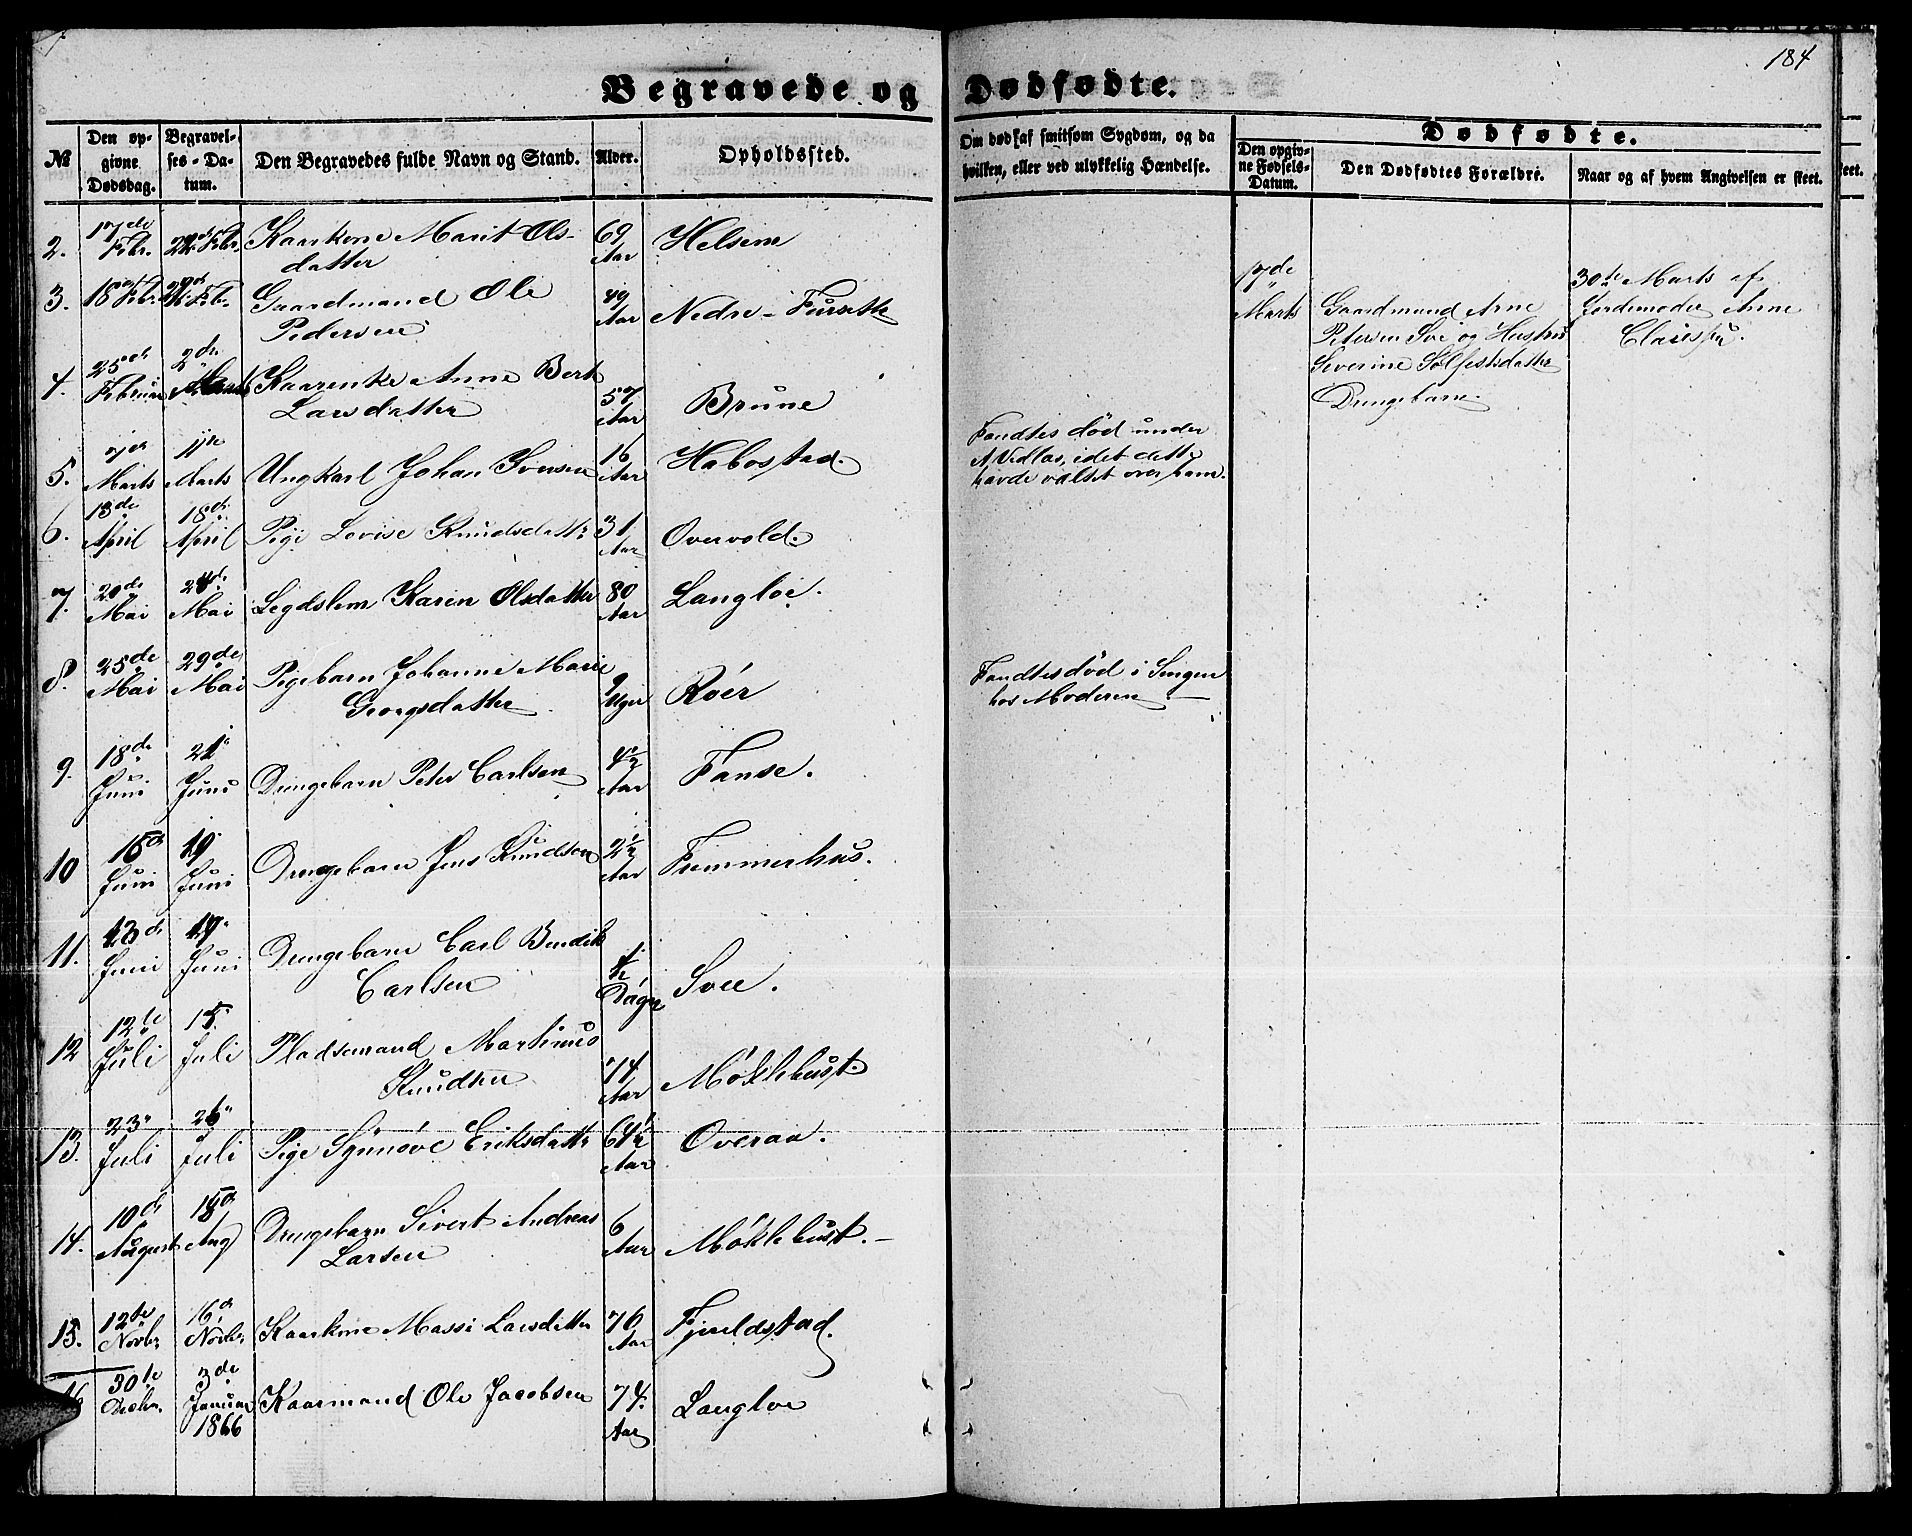 184
Begravede og Dødfødte.
№ Den opgivne Dødsdag. Begravelses-Datum. Den Begravedes fulde Navn og Stand. Alder. Opholdssted. Om død af smitsom Sygdom, og da hvilken, eller ved ulykkelig Hændelse.
Dødfødte.
Den opgivne Fødsels-Datum. Den Dødfødtes Forældre. Naar og af hvem Angivelsen er skeet.
2. 17de Febr. Febr. Kaarkone Marit Ols-
datter 69 Aar Helsem
3. 18 Febr. Febr. Gaardmand Ole
Pedersen 49 Aar Nedre-Furseth
4. 25de Februar 2de Marts Kaarenke Anne Berte
Larsdatter 57 Aar Brune
5. Marts 11te Marts Ungkarl Johan Iversen 16 Aar Habostad.
Fandtes død under
et Vedlas, idet dette
havde væltet over ham.
6. 13de April 18de April Pige Lovise Knudsdatter 31 Aar Overvold.
7. 20de Mai 28de Mai Legdslem Karen Olsdatter 80 Aar Langloe.
8. 25de Mai 29de Mai Pigebarn Johanne Marie
Georgsdatter 9 Uger Roér
Fandtes død i Sengen
hos Moderen
9. 18de Juni 21 Juni Drengebarn Peter Carlsen 4½ Aar Fanse.
10 Juni 19 Juni Drengebarn Jens Knudsen 2½ Aar Fremmerhus.
11. 13de Juni 19 Juni Drengebarn Carl Bendik
Carlsen ½ Døgn Svee.
12 12te Juli 15. Juli Pladsemand Martinus
Knudsen 74 Aar Møklebust.
13. 23 Juli 26 Juli Pige Synnøve Eriksdatter 64½ Aar Overaa.
14. 10de August 15de Aug Drengebarn Sivert Andreas
Larsen 6 Aar Møklebust.
15. 12te Novbr 16de Novbr Kaarkone Massi Larsdatter 76 Aar Fjeldstad.
16 30te Decbr. 3de Januar 1866 Kaarmand Ole Jacobsen 74 Aar Langloe
17de Marts
Gaardmand Arne
Petersen Sve og Hustru
Severine Solfestsdatter
Drengebarn.
30te Marts af
Jordemoder Anne